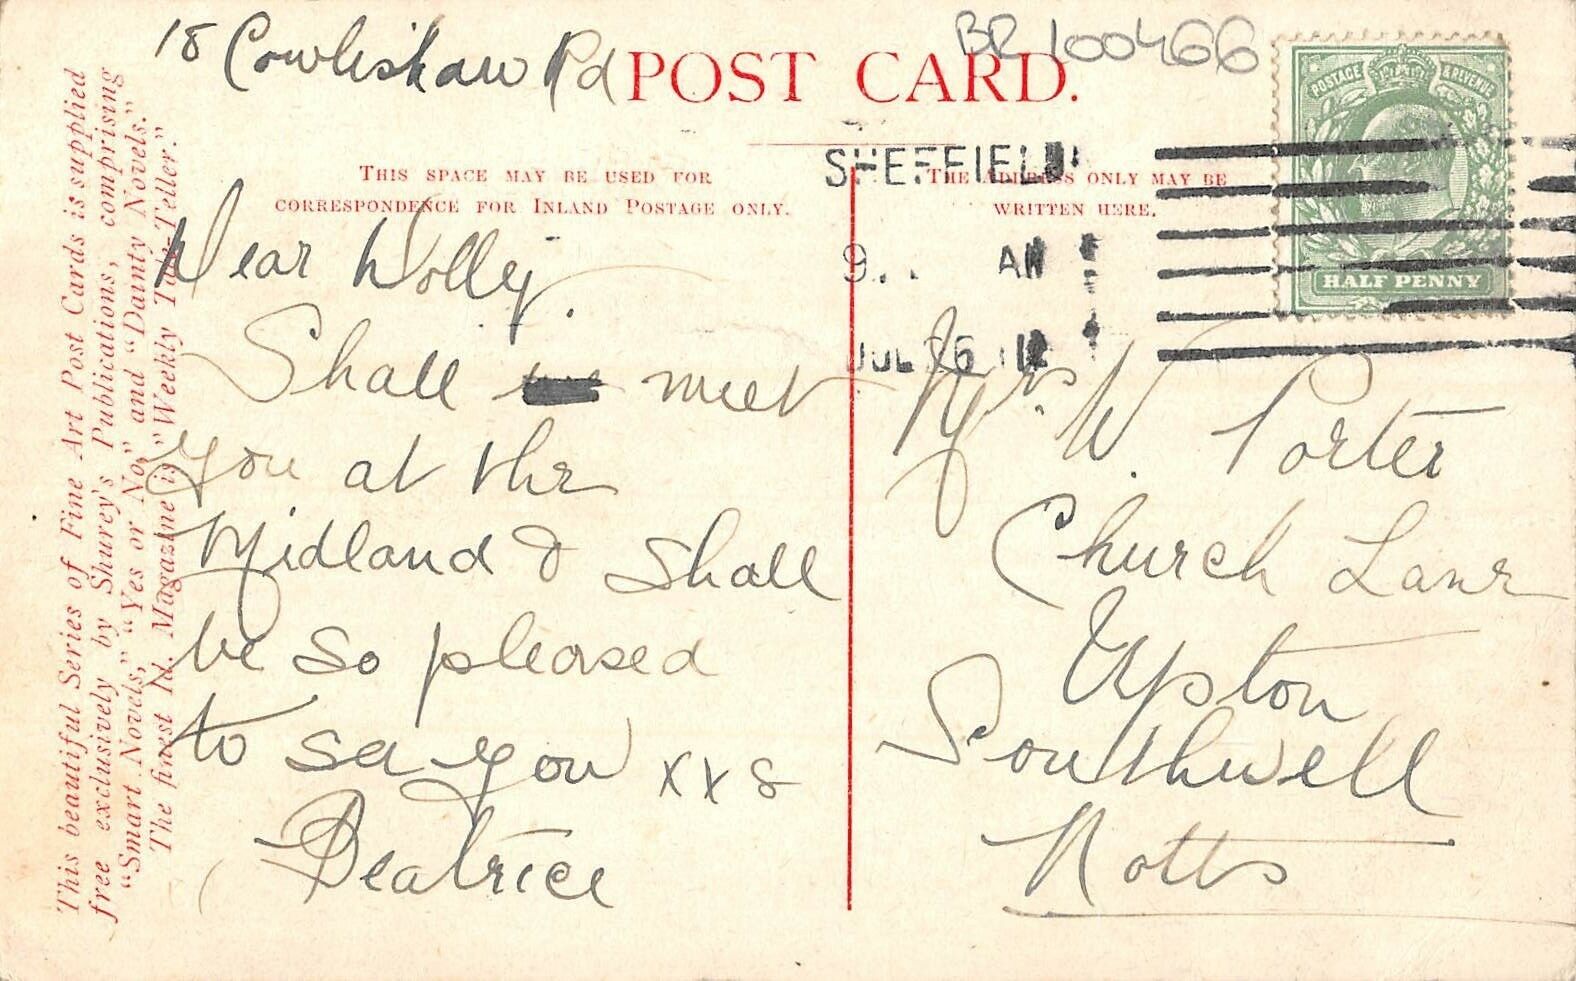 18 Cowlishaw Rd
POST CARD.
BR 100466
POSTAGE & REVENUE
HALF PENNY
SHEFFIELD
9.. AM
JUL 26 12
THIS SPACE MAY BE USED FOR
CORRESPONDENCE FOR INLAND POSTAGE ONLY.
THE ADDRESS ONLY MAY BE
WRITTEN HERE.
Dear Dolly.
Shall meet
you at the
Midland & shall
be so pleased
to see you xx &
Beatrice
Mrs. W. Porter
Church Lane
Upton
Southwell
Notts
This beautiful Series of Fine Art Post Cards is supplied
free exclusively by Shurey's Publications, comprising
"Smart Novels," "Yes or No," and "Dainty Novels."
The finest 1d. Magazine is "Weekly Tale-Teller."